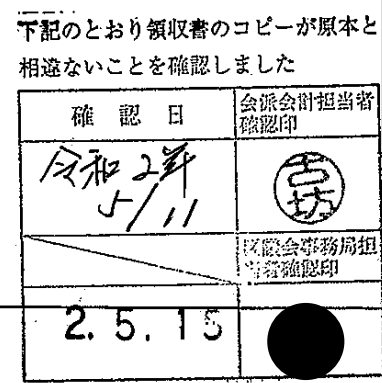 下記のとおり領収書のコピーが原本と
相違ないことを確認しました
確 認 日
会派会計担当者
確認印
令和2年
5/11
古坊
区議会事務局担
当者確認印
2.5.15